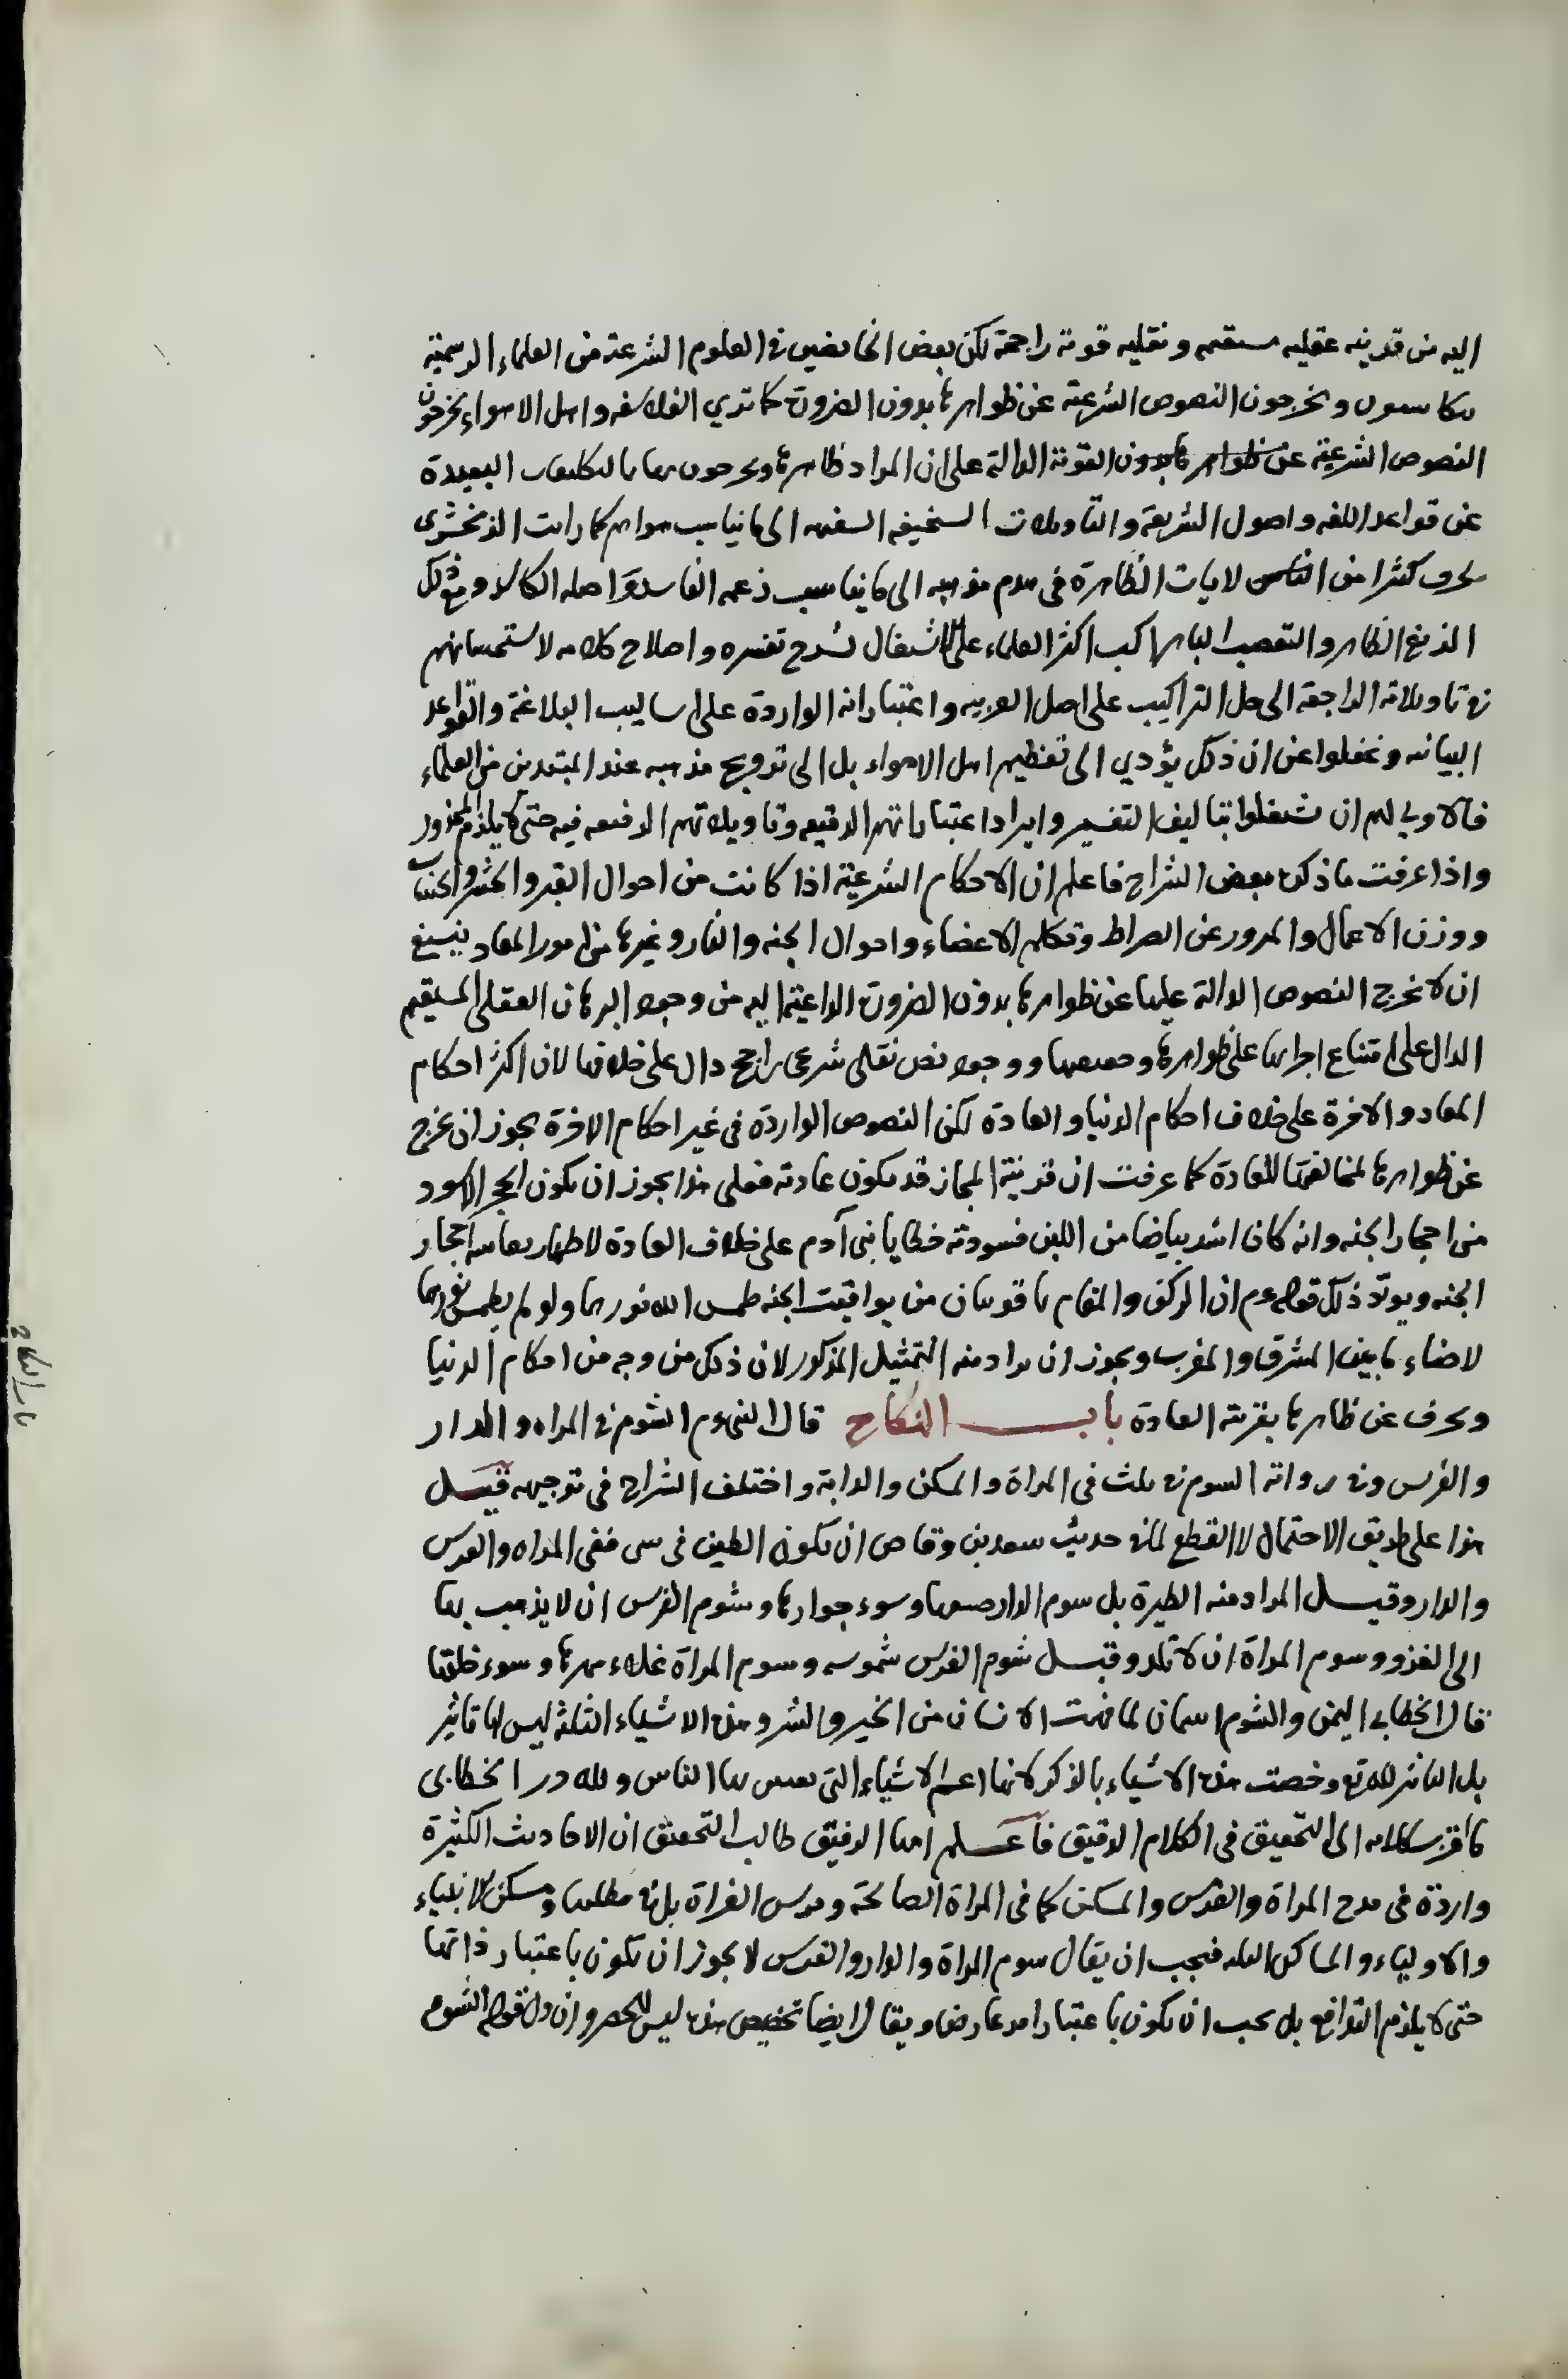 اليه من قرينه عقليه مستقيمه ونقليه قوية راجحة لكن بعض الخائضين في العلوم الشرعية من العلماء الرسمية
ويخرجون النصوص الشرعية عن ظواهرها بدون الضرورة كما تري الفلاسفه واهل الاهواء يخرجون
النصوص الشرعية عن ظواهرها بدون القرينة الدالة على ان المراد ظاهرها البعيدة
عن قواعد اللغه واصول الشريعة والتأويلات السخيفه السفيهه الى ما يناسب هواهم كما رايت الزمخشرى
كثيرا من الايات الظاهرة فى هدم مذهبه الى ما يناسب زعمه الفاسد واصله الكاسد ومع ذلك
الزيغ الظاهر والتعصب الباهر اكب اكثر العلماء على الاشتغال بشرح تفسيره واصلاح كلامه لاستحسانهم
في تاويلاته الراجعة الى حل التراكيب على اصل العربيه واعتباراته الواردة على اساليب البلاغة والقواعد
البيانيه وغفلوا عن ان ذلك يؤدي الى تعظيم اهل الاهواء بل الى ترويج مذهبه عند المبتدين من العلماء
فالاولى لهم ان يشتغلوا بتاليف التفسير وايراد اعتباراتهم الدقيقه وتاويلاتهم الرفيعه فيه حتى لا يلزم المحذور
واذا عرفت ما ذكره بعض الشراح فاعلم ان الاحكام الشرعية اذا كانت من احوال القبر والحشر والحساب
ووزن الاعمال والمرور عن الصراط وتكلم الاعضاء واحوال الجنه والنار وغيرها من امور المعاد ينبغي
ان لا نخرج النصوص الدالة عليها عن ظواهرها بدون الضرورة الداعية اليه من وجود البرهان العقلى المستقيم
الدال على امتناع اجرائها على ظواهرها وحقيقتها ووجود نص نقلى شرعى راجح دال على خلافها لان اكثر احكام
المعاد والاخرة على خلاف احكام الدنيا والعادة لكن النصوص الواردة فى غير احكام الاخرة يجوز ان نخرج
عن ظواهرها لمخالفتها للعادة كما عرفت ان قرينة المجاز قد يكون عادته فعلى هذا يجوز ان يكون الحجر الاسود
من احجار الجنه وانه كان اشد بياضا من اللبن فسودته خطايا بنى آدم على خلاف العادة لاظهار احجار
الجنه ويويد ذلك قوله عم ان الركن والمقام ياقوتتان من يواقيت الجنه طمس الله نورهما ولو لم يطمس نورهما
لاضاء ما بين المشرق والمغرب ويجوز ان يراد منه التمثيل المذكور لان ذلك من وجه من احكام الدنيا
ويحرف عن ظاهرها بقرينة العادة باب النكاح قال النبي عم الشوم في المراه والدار
والفرس وفي رواته الشوم في ثلث فى المراة والمسكن والدابة واختلف الشراح فى توجيهه فقيل
هذا على طريق الاحتمال لا القطع لما في حديث سعد بن وقاص ان يكون الطير فى شى ففى المراه والفرس
والدار وقيل المراد منه الطيرة بل شوم الدار ضيقها وسوء جوارها وشوم الفرس ان لا يذهب بها
الى الغزو وشوم المراة ان لا تلد وقيل شوم الفرس شموسه وشوم المراة غلاء مهرها وسوء خلقها
قال الخطابي اليمن والشوم اسمان لما الانسان من الخير والشر وهذه الاشياء الثلثة ليس لها تاثير
بل التاثير لله تع وخصت هذه الاشياء بالذكر لانها اعم الاشياء التى الناس ولله در الخطابي
ما اقرب كلامه الى التحقيق فى الكلام الدقيق فاعلم ايها الرفيق طالب التحقيق ان الاحاديث الكثيرة
واردة فى مدح المراة والفرس والمسكن كما فى المراة الصالحة وفرس الغزاة ومسكن الانبياء
والاولياء والمساكن فيجب ان يقال شوم المراة والدار والفرس لا يجوز ان تكون باعتبار ذاتها
حتى لا يلزم التدافع بل يجب ان يكون باعتبار امر عارض ويقال ايضا تخصيص هذه ليس للحصر وان دل قوله الشوم